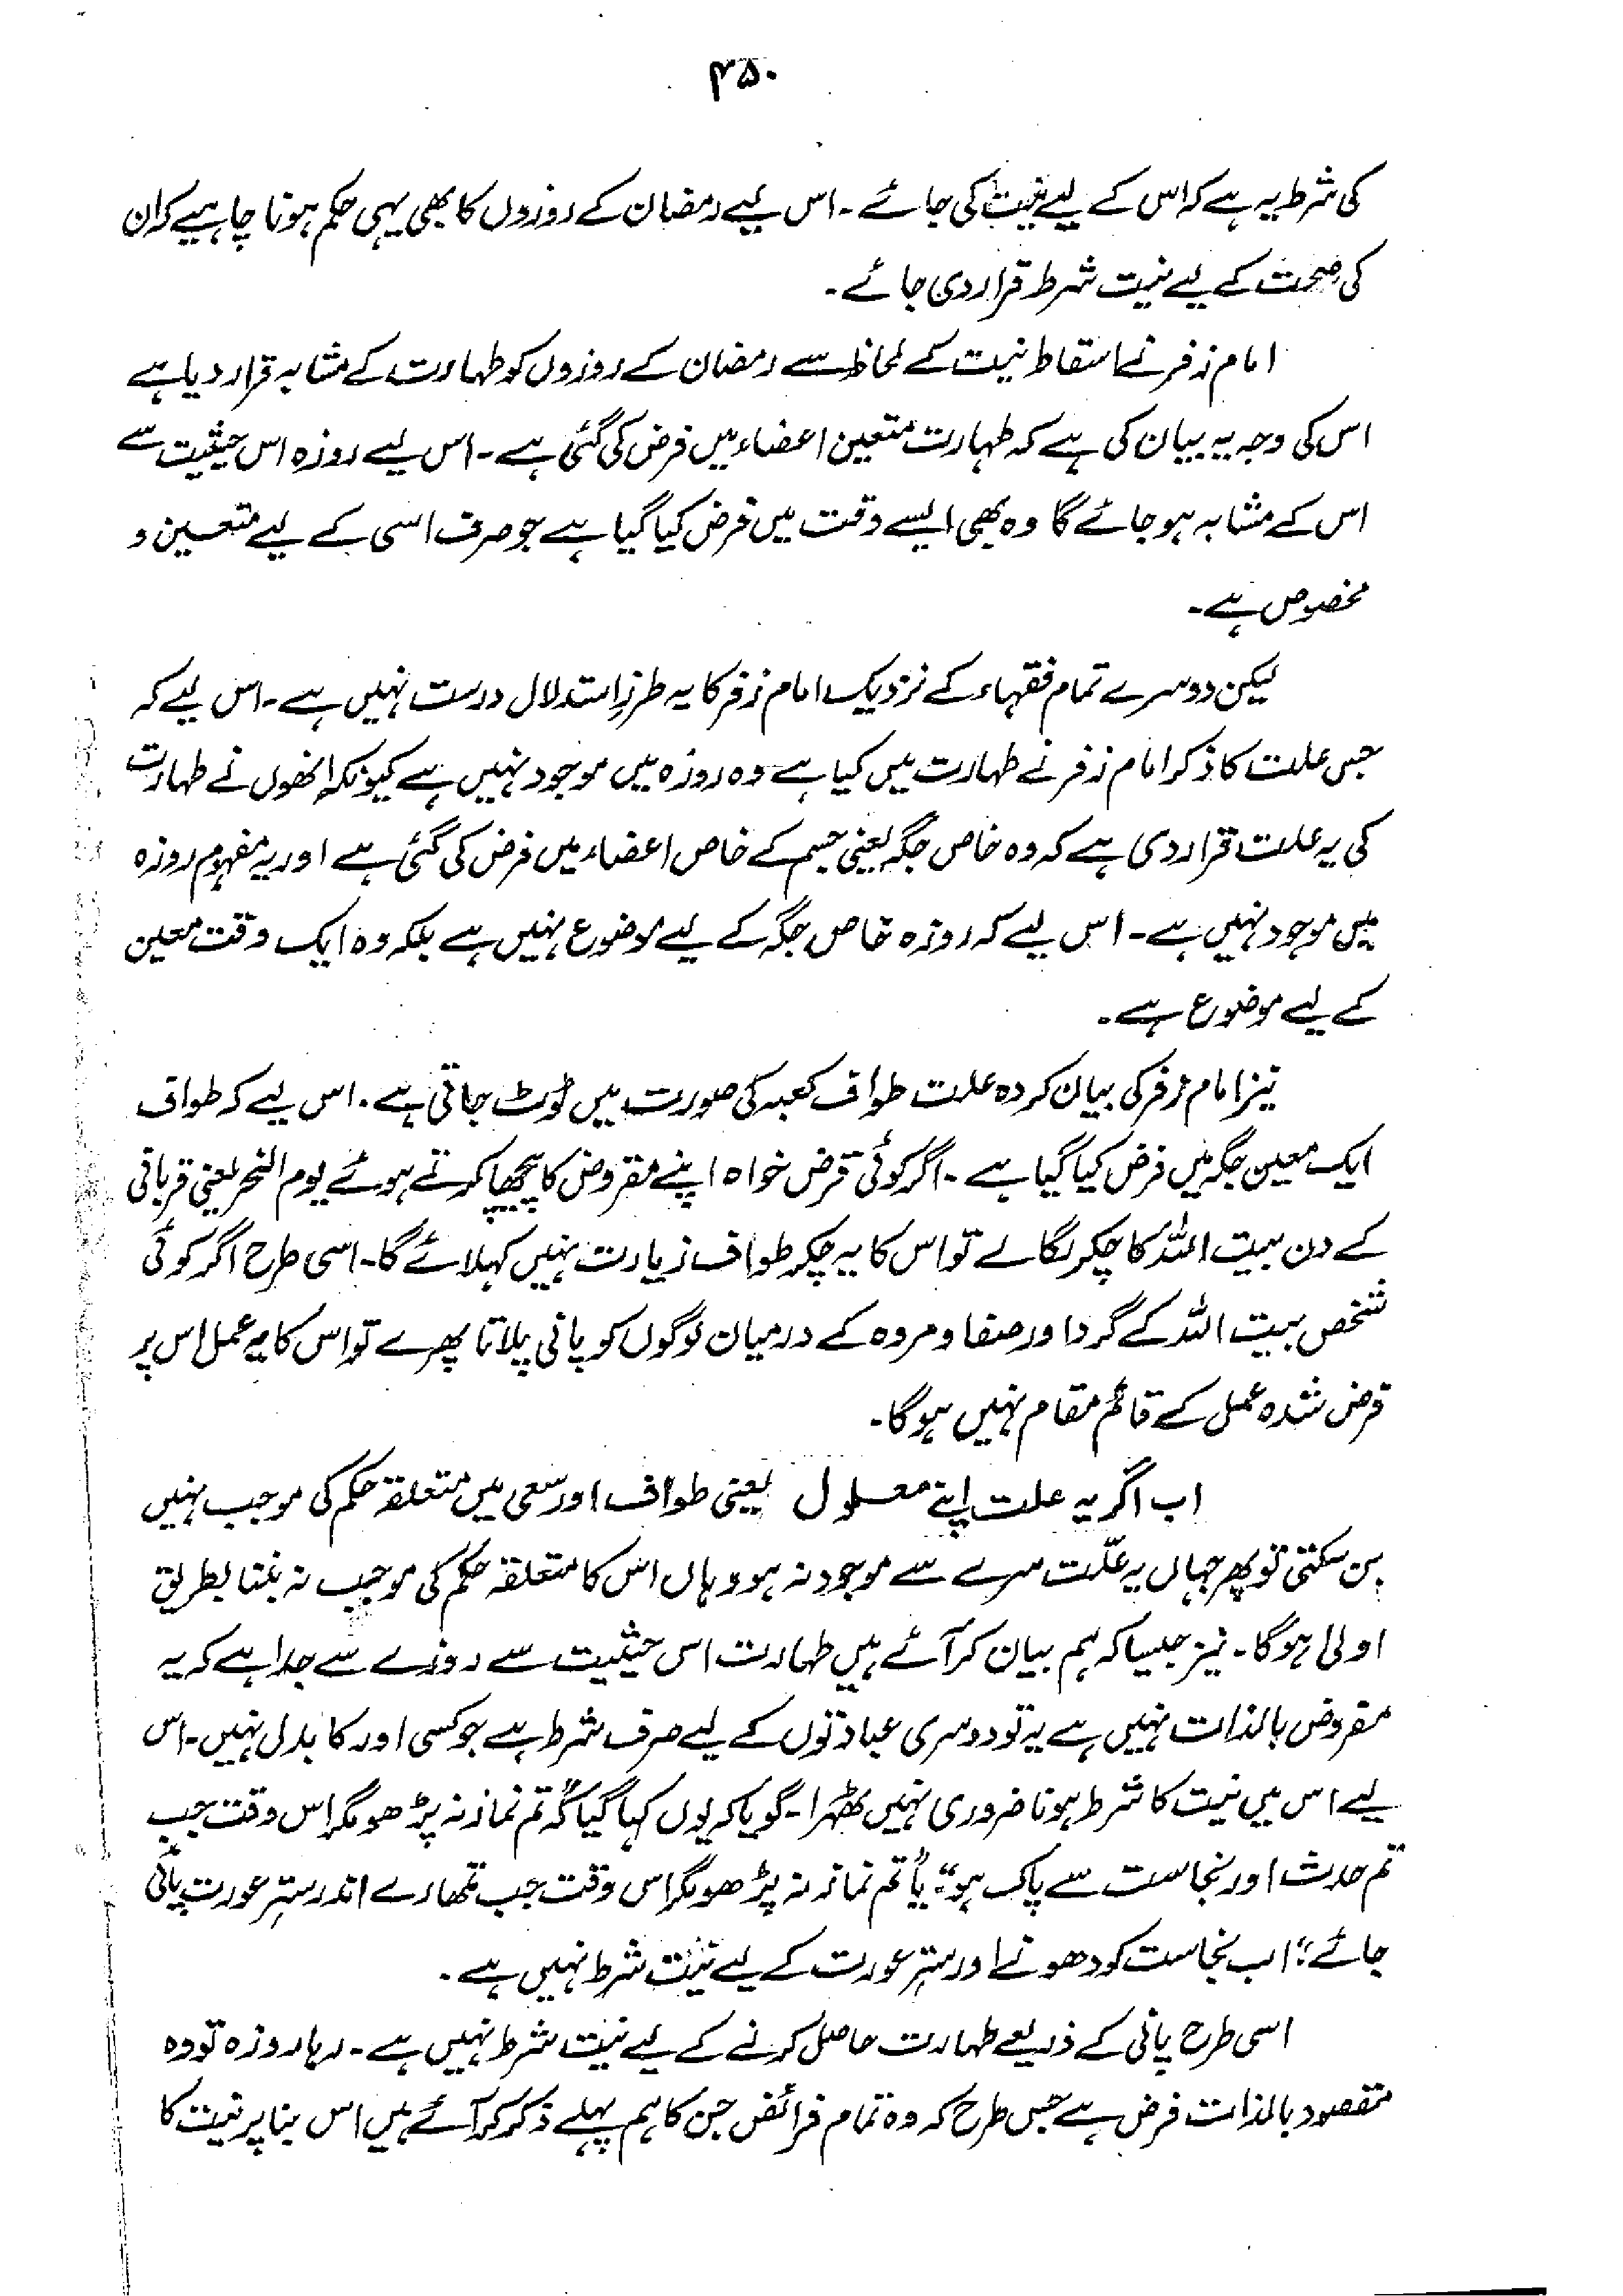 ۴۵۰
کی شرط یہ ہے کہ اس کے لیے نیت کی جائے۔ اس لیے رمضان کے روزوں کا بھی یہی حکم ہونا چاہیے کہ ان
کی صحت کے لیے نیت شرط قرار دی جائے۔
امام زفر نے اسقاط نیت کے لحاظ سے رمضان کے روزوں کو طہارت کے مشابہ قرار دیا ہے
اس کی وجہ یہ بیان کی ہے کہ طہارت متعین اعضاء میں فرض کی گئی ہے۔ اس لیے روزہ اس حیثیت سے
اس کے مشابہ ہو جائے گا وہ بھی ایسے وقت میں فرض کیا گیا ہے جو صرف اسی کے لیے متعین و
مخصوص ہے۔
لیکن دوسرے تمام فقہاء کے نزدیک امام زفر کا یہ طرزِ استدلال درست نہیں ہے۔ اس لیے کہ
جس علت کا ذکر امام زفر نے طہارت میں کیا ہے وہ روزہ میں موجود نہیں ہے کیونکہ انھوں نے طہارت
کی یہ علت قرار دی ہے کہ وہ خاص جگہ یعنی جسم کے خاص اعضاء میں فرض کی گئی ہے اور یہ مفہوم روزہ
میں موجود نہیں ہے۔ اس لیے کہ روزہ خاص جگہ کے لیے موضوع نہیں ہے بلکہ وہ ایک وقت معین
کے لیے موضوع ہے۔
نیز امام زفر کی بیان کردہ علت طواف کعبہ کی صورت میں ٹوٹ جاتی ہے۔ اس لیے کہ طواف
ایک معین جگہ میں فرض کیا گیا ہے۔ اگر کوئی قرض خواہ اپنے مقروض کا پیچھا کرتے ہوئے یوم النحر یعنی قربانی
کے دن بیت اللہ کا چکر لگالے تو اس کا یہ چکر طواف زیارت نہیں کہلائے گا۔ اسی طرح اگر کوئی
شخص بیت اللہ کے گرد اور صفا و مروہ کے درمیان لوگوں کو پانی پلاتا پھرے تو اس کا یہ عمل اس پر
فرض شدہ عمل کے قائم مقام نہیں ہوگا۔
اب اگر یہ علت اپنے معلول یعنی طواف اور سعی میں متعلقہ حکم کی موجب نہیں
بن سکتی تو پھر جہاں یہ علّت سرے سے موجود نہ ہو وہاں اس کا متعلقہ حکم کی موجب نہ بننا بطریق
اولی ہوگا۔ نیز جیسا کہ ہم بیان کر آئے ہیں طہارت اس حیثیت سے روزے سے جدا ہے کہ یہ
مفروض بالذات نہیں ہے یہ تو دوسری عبادتوں کے لیے صرف شرط ہے جو کسی اور کا بدل نہیں۔ اس
لیے اس میں نیت کا شرط ہونا ضروری نہیں ٹھہرا۔ گویا کہ یوں کہا گیا کہ "تم نماز نہ پڑھو مگر اس وقت جب
تم حدث اور نجاست سے پاک ہو" یا "تم نماز نہ پڑھو مگر اس وقت جب تمھارے اندر ستر عورت پائی
جائے" اب نجاست کو دھونے اور ستر عورت کے لیے نیت شرط نہیں ہے۔
اسی طرح پانی کے ذریعے طہارت حاصل کرنے کے لیے نیت شرط نہیں ہے۔ رہا روزہ تو وہ
مقصود بالذات فرض ہے جس طرح کہ وہ تمام فرائض جن کا ہم پہلے ذکر کر آئے ہیں اس بنا پر نیت کا